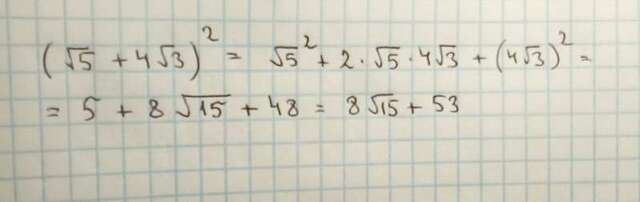 (√5 + 4√3)² = √5² + 2·√5·4√3 + (4√3)² =
= 5 + 8√15 + 48 = 8√15 + 53